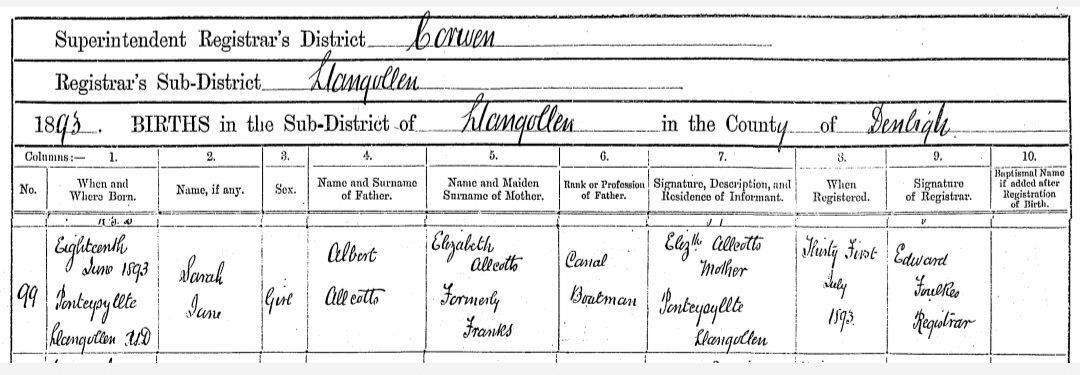 Superintendent Registrar's District Corwen
Registrar's Sub-District Llangollen
1893. BIRTHS in the Sub-District of Llangollen in the County of Denbigh
Columns:— 1. 2. 3. 4. 5. 6. 7. 8. 9. 10.
No. When and Where Born. Name, if any. Sex. Name and Surname of Father. Name and Maiden Surname of Mother. Rank or Profession of Father. Signature, Description, and Residence of Informant. When Registered. Signature of Registrar. Baptismal Name if added after Registration of Birth.
99
Eighteenth
June 1893
Ponteypyllte
Llangollen
Sarah
Jane
Girl
Albert
Allcotts
Elizabeth
Allcotts
Formerly
Franks
Canal
Boatman
Eliz.th Allcotts
Mother
Ponteypyllte
Llangollen
Thirty First
July
1893
Edward
Foulkes
Registrar